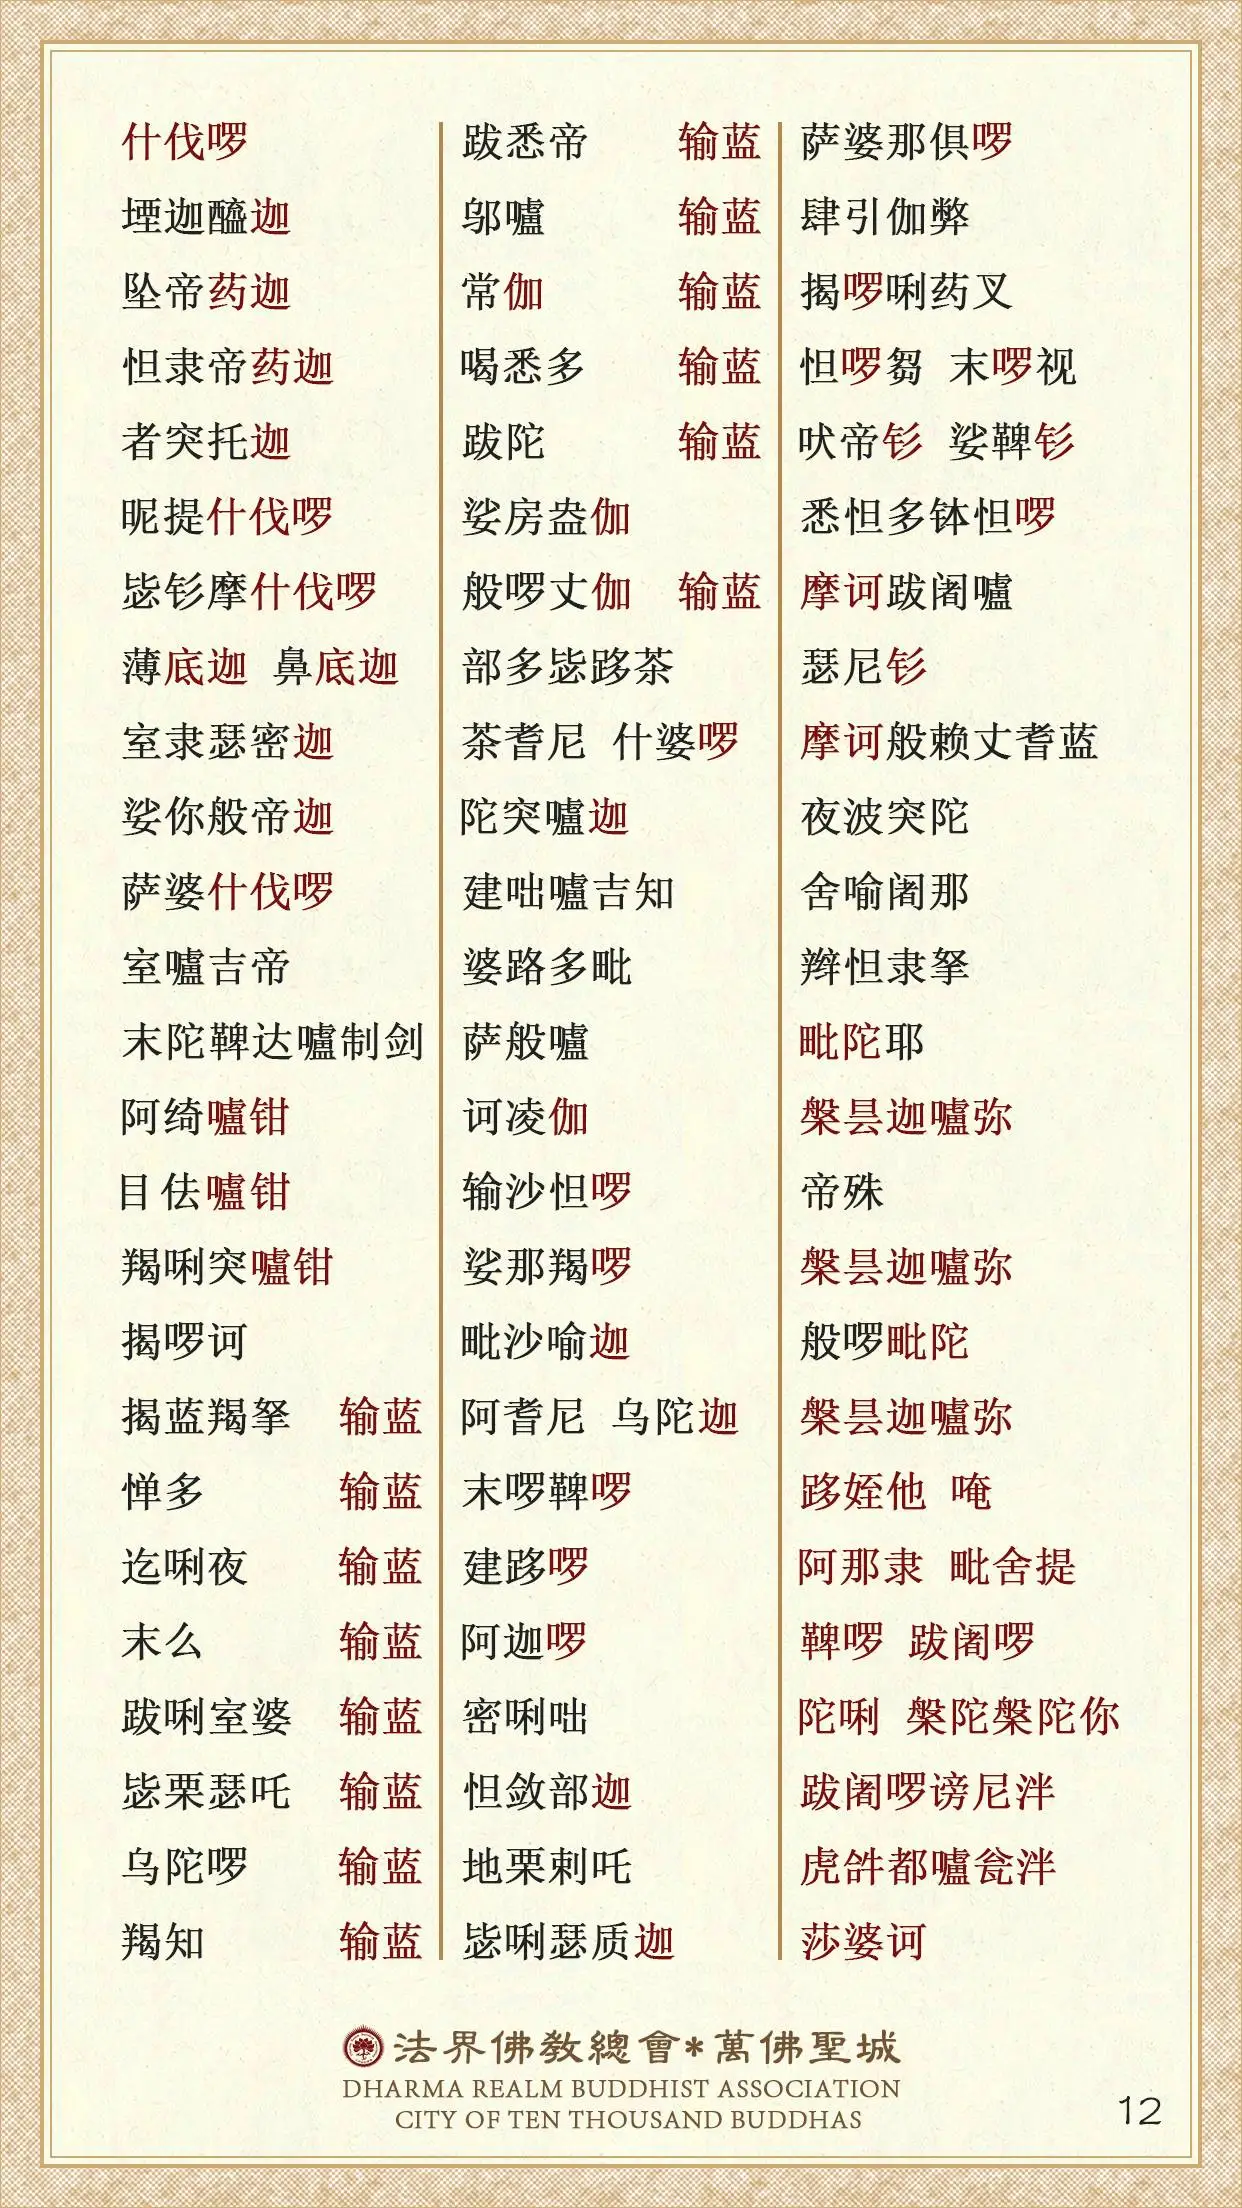 什伐啰
堙迦醯迦
坠帝药迦
怛隶帝药迦
者突托迦
昵提什伐啰
毖钐摩什伐啰
薄底迦 鼻底迦
室隶瑟密迦
娑你般帝迦
萨婆什伐啰
室嚧吉帝
末陀鞞达嚧制剑
阿绮嚧钳
目佉嚧钳
羯唎突嚧钳
揭啰诃
揭蓝羯拏 输蓝
惮多 输蓝
迄唎夜 输蓝
末么 输蓝
跋唎室婆 输蓝
毖栗瑟吒 输蓝
乌陀啰 输蓝
羯知 输蓝
跋悉帝 输蓝
邬嚧 输蓝
常伽 输蓝
喝悉多 输蓝
跋陀 输蓝
娑房盎伽
般啰丈伽 输蓝
部多毖跢茶
茶耆尼 什婆啰
陀突嚧迦
建咄嚧吉知
婆路多毗
萨般嚧
诃凌伽
输沙怛啰
娑那羯啰
毗沙喻迦
阿耆尼 乌陀迦
末啰鞞啰
建跢啰
阿迦啰
密唎咄
怛敛部迦
地栗剌吒
毖唎瑟质迦
萨婆那俱啰
肆引伽弊
揭啰唎药叉
怛啰刍 末啰视
吠帝钐 娑鞞钐
悉怛多钵怛啰
摩诃跋阇嚧
瑟尼钐
摩诃般赖丈耆蓝
夜波突陀
舍喻阇那
辫怛隶拏
毗陀耶
槃昙迦嚧弥
帝殊
槃昙迦嚧弥
般啰毗陀
槃昙迦嚧弥
跢姪他 唵
阿那隶 毗舍提
鞞啰 跋阇啰
陀唎 槃陀槃陀你
跋阇啰谤尼泮
虎𤙖都嚧瓮泮
莎婆诃
法界佛教總會*萬佛聖城
DHARMA REALM BUDDHIST ASSOCIATION
CITY OF TEN THOUSAND BUDDHAS
12